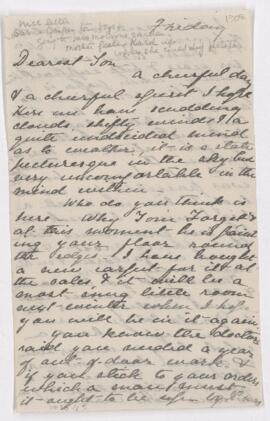 nice letter
Friday
Dearest Son
a cheerful day
& a cheerful spirit I hope
Here we have scudding
clouds, shifty winds & a
quite undecided mind
as to weather. it is a state
picturesque in the sky but
very uncomfortable in the
mind within.
Who do you think is
here Why Tom Forget
at this moment he is paint
ing your floor round
the edges. I have bought
a new carpet for it at
the sales, & it will be a
most snug little room
next winter when I hope
you will be in it again
You know the doctors
said you needed a year
of out-of-door work &
if you stick to your orders
which a man must
it ought to be